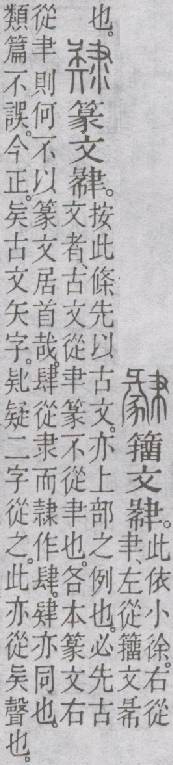 籒文𦘒。此依小徐。右從
聿、左從籒文㣇
也。
篆文𦘒。按此條先以古文。亦上部之例也。必先古
文者古文從聿篆不從聿也。各本篆文右
從聿則何不以篆文居首哉。肆從隶而隸作肆。肄亦同也。
類篇不誤。今正。矣古文矢字。𠤕疑二字從之。此亦從矣聲也。